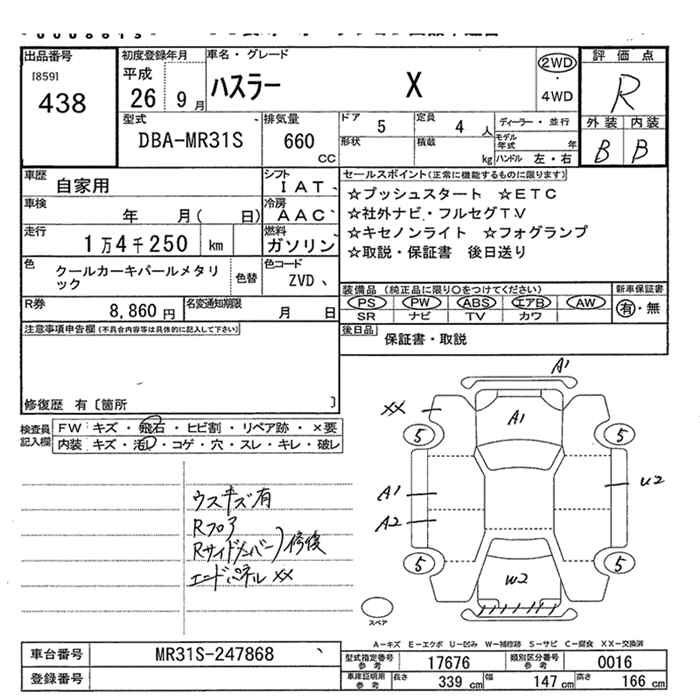 出品番号
[859]
438
初度登録年月
平成
26 9月
車名・グレード
ハスラー X
2WD
・
4WD
評価点
R
外装 内装
B B
型式
DBA-MR31S
排気量
660
CC
ドア 5
定員 4 人
形状
積載 kg
ディーラー・並行
モデル年式 年
ハンドル 左・右
車歴
自家用
シフト
IAT
車検
年 月( 日)
冷房
AAC
走行
1万4千250 km
燃料
ガソリン
色
クールカーキパールメタリ
ック
色替
色コード
ZVD
R券
8,860円
名変通知期限
月 日
セールスポイント(正常に機能するものに限ります)
☆プッシュスタート ☆ETC
☆社外ナビ・フルセグTV
☆キセノンライト ☆フォグランプ
☆取説・保証書 後日送り
装備品 (純正品に限り○をつけてください)
PS PW ABS エアB AW
SR ナビ TV カワ
新車保証書
有・無
後日品
保証書・取説
注意事項申告欄(不具合内容等は具体的に記入して下さい)
修復歴 有〔箇所 〕
検査員
記入欄
FW キズ・飛石・ヒビ割・リペア跡・×要
内装 キズ・汚レ・コゲ・穴・スレ・キレ・破レ
ウスキズ有
Rフロア
Rサイドメンバー)修復
エンドパネル XX
A1
XX
A1
5 5
A1
A2
U2
5 5
W2
スペア
A-キズ E-エクボ U-凹み W-補修跡 S-サビ C-腐食 XX-交換済
車台番号
MR31S-247868
登録番号
型式指定番号
参考
17676
類別区分番号
参考
0016
車庫証明用
参考
長さ 339 cm
幅 147 cm
高さ 166 cm